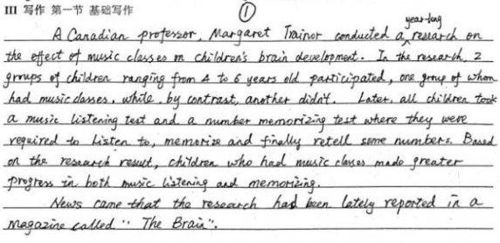 III 写作 第一节 基础写作
①
year-long
A Canadian professor, Margaret Trainor conducted a research on
the effect of music classes on children's brain development. In the research, 2
groups of children ranging from 4 to 6 years old participated, one group of whom
had music classes, while, by contrast, another didn't. Later, all children took
a music listening test and a number memorizing test where they were
required to listen to, memorize and finally retell some numbers. Based
on the research result, children who had music classes made greater
progress in both music listening and memorizing.
News came that the research had been lately reported in a
magazine called " The Brain".